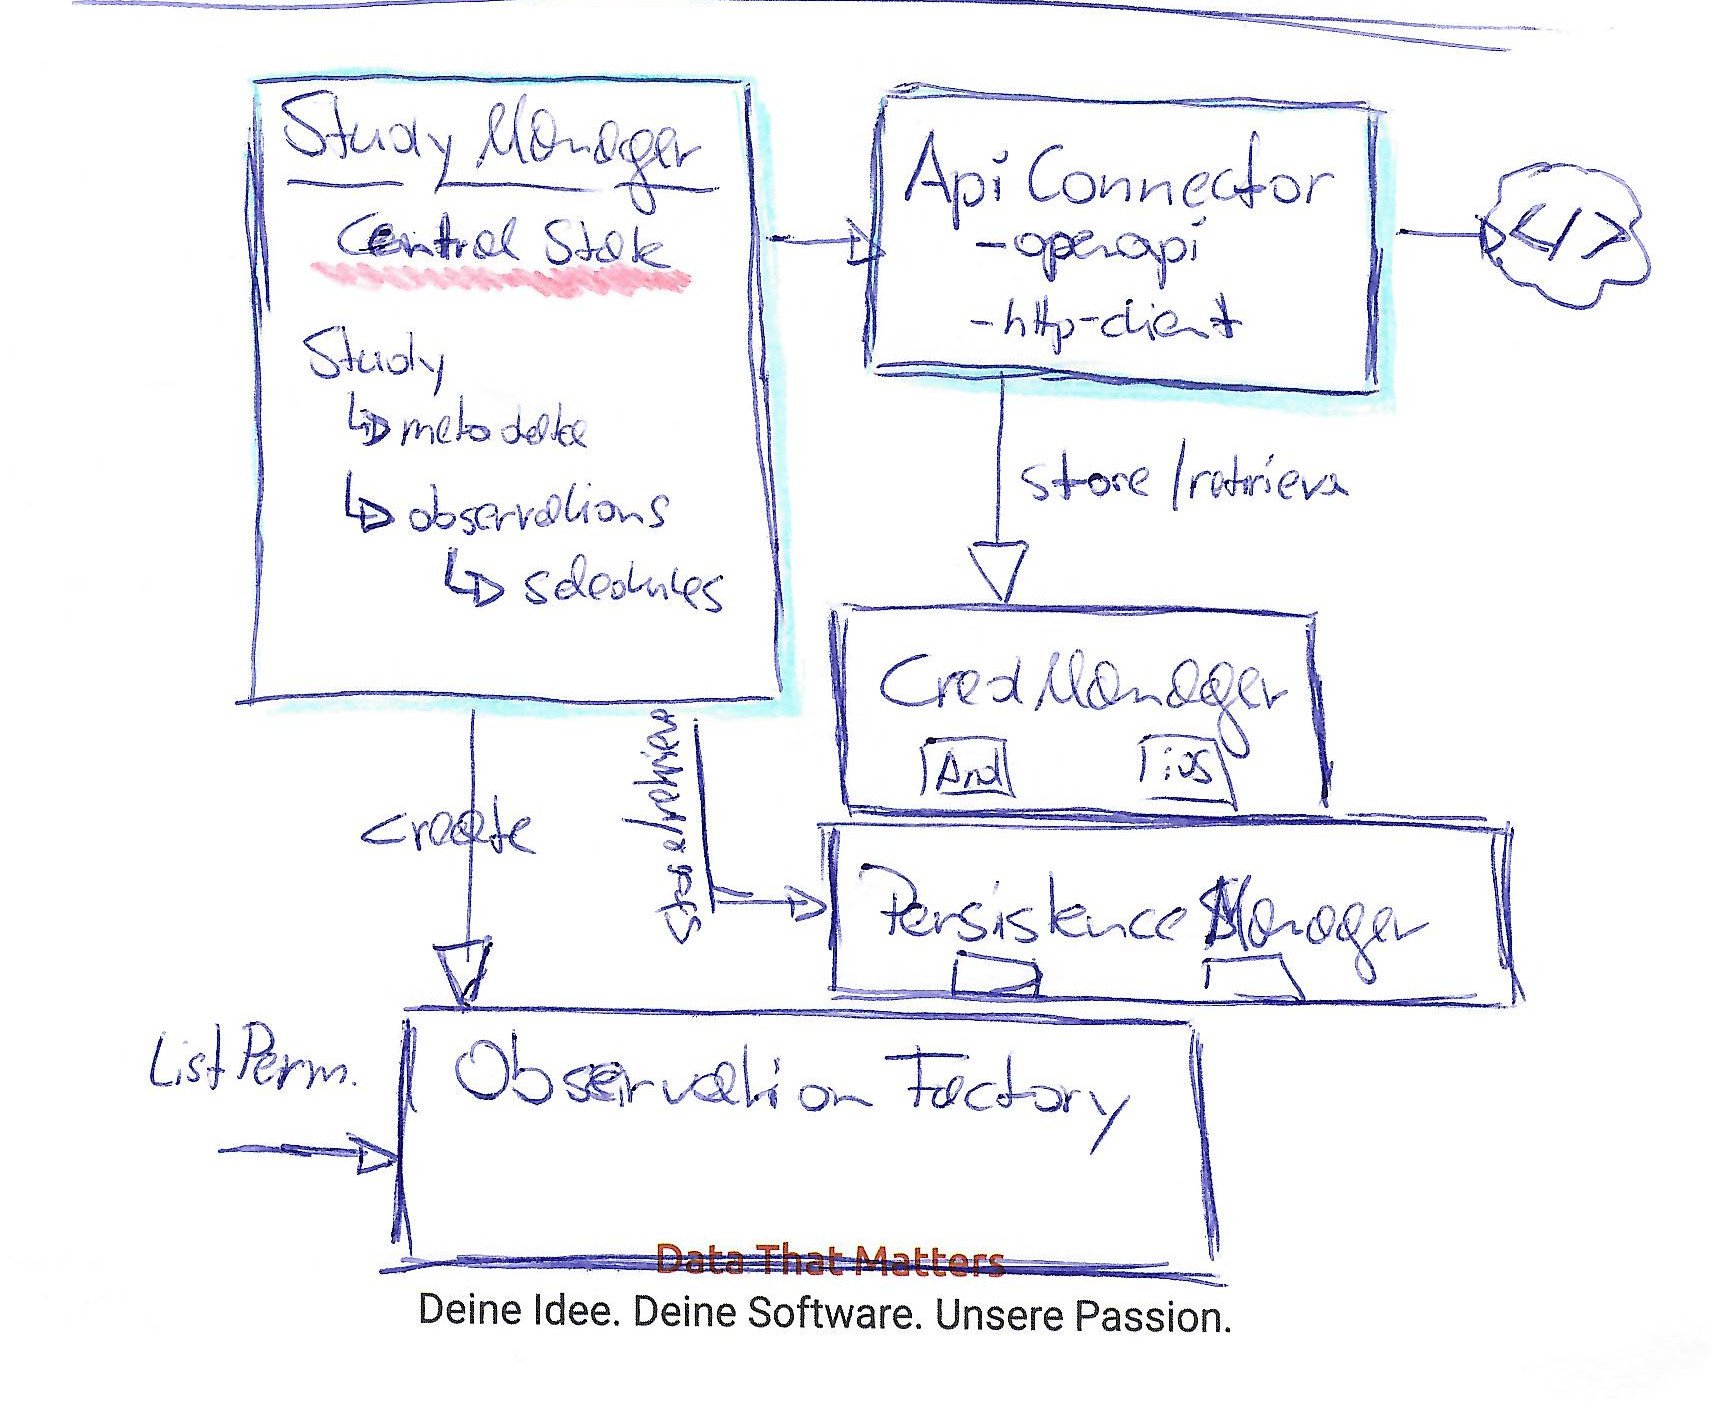 Study Manager
Central State
Study
↳ metadata
↳ observations
↳ schedules
Api Connector
- openapi
- http-client
</>
store / retrieve
Cred Manager
And
iOS
create
store/retrieve
Persistence Manager
List Perm.
Observation Factory
Data That Matters
Deine Idee. Deine Software. Unsere Passion.